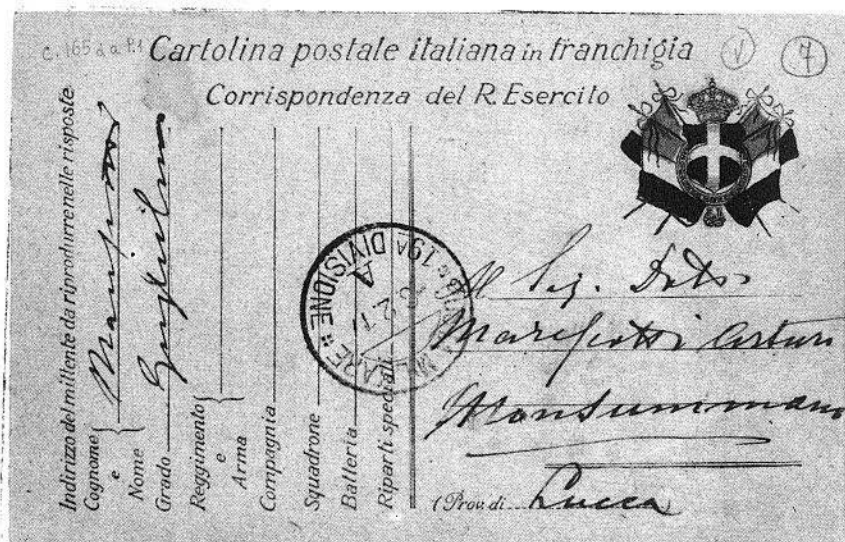 Cartolina postale italiana in franchigia
Corrispondenza del R. Esercito
7
Indirizzo del mittente da riprodurre nelle risposte
Cognome
e
Nome
Grado
Guglielmo
Reggimento
e
Arma
Compagnia
Squadrone
Batteria
Riparti speciali
MILITARE
19A DIVISIONE
A
Al Sig. Dott.
Arturo
Monsummano
(Prov. di Lucca